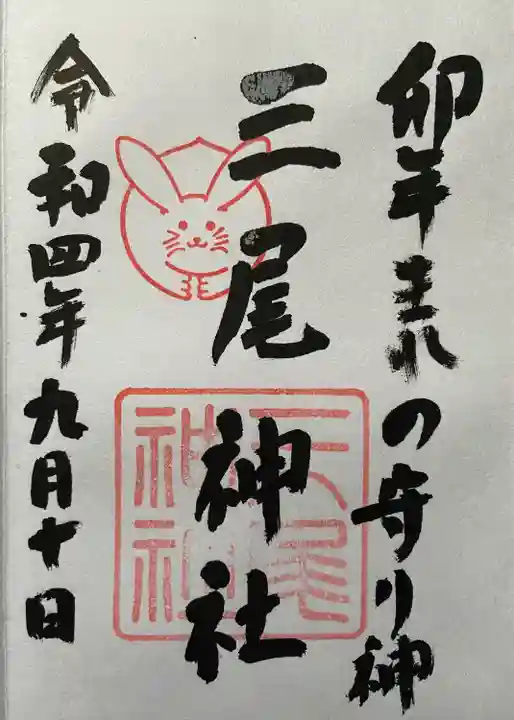 卯年生れの守り神
三尾神社
令和四年九月十日
三尾神社